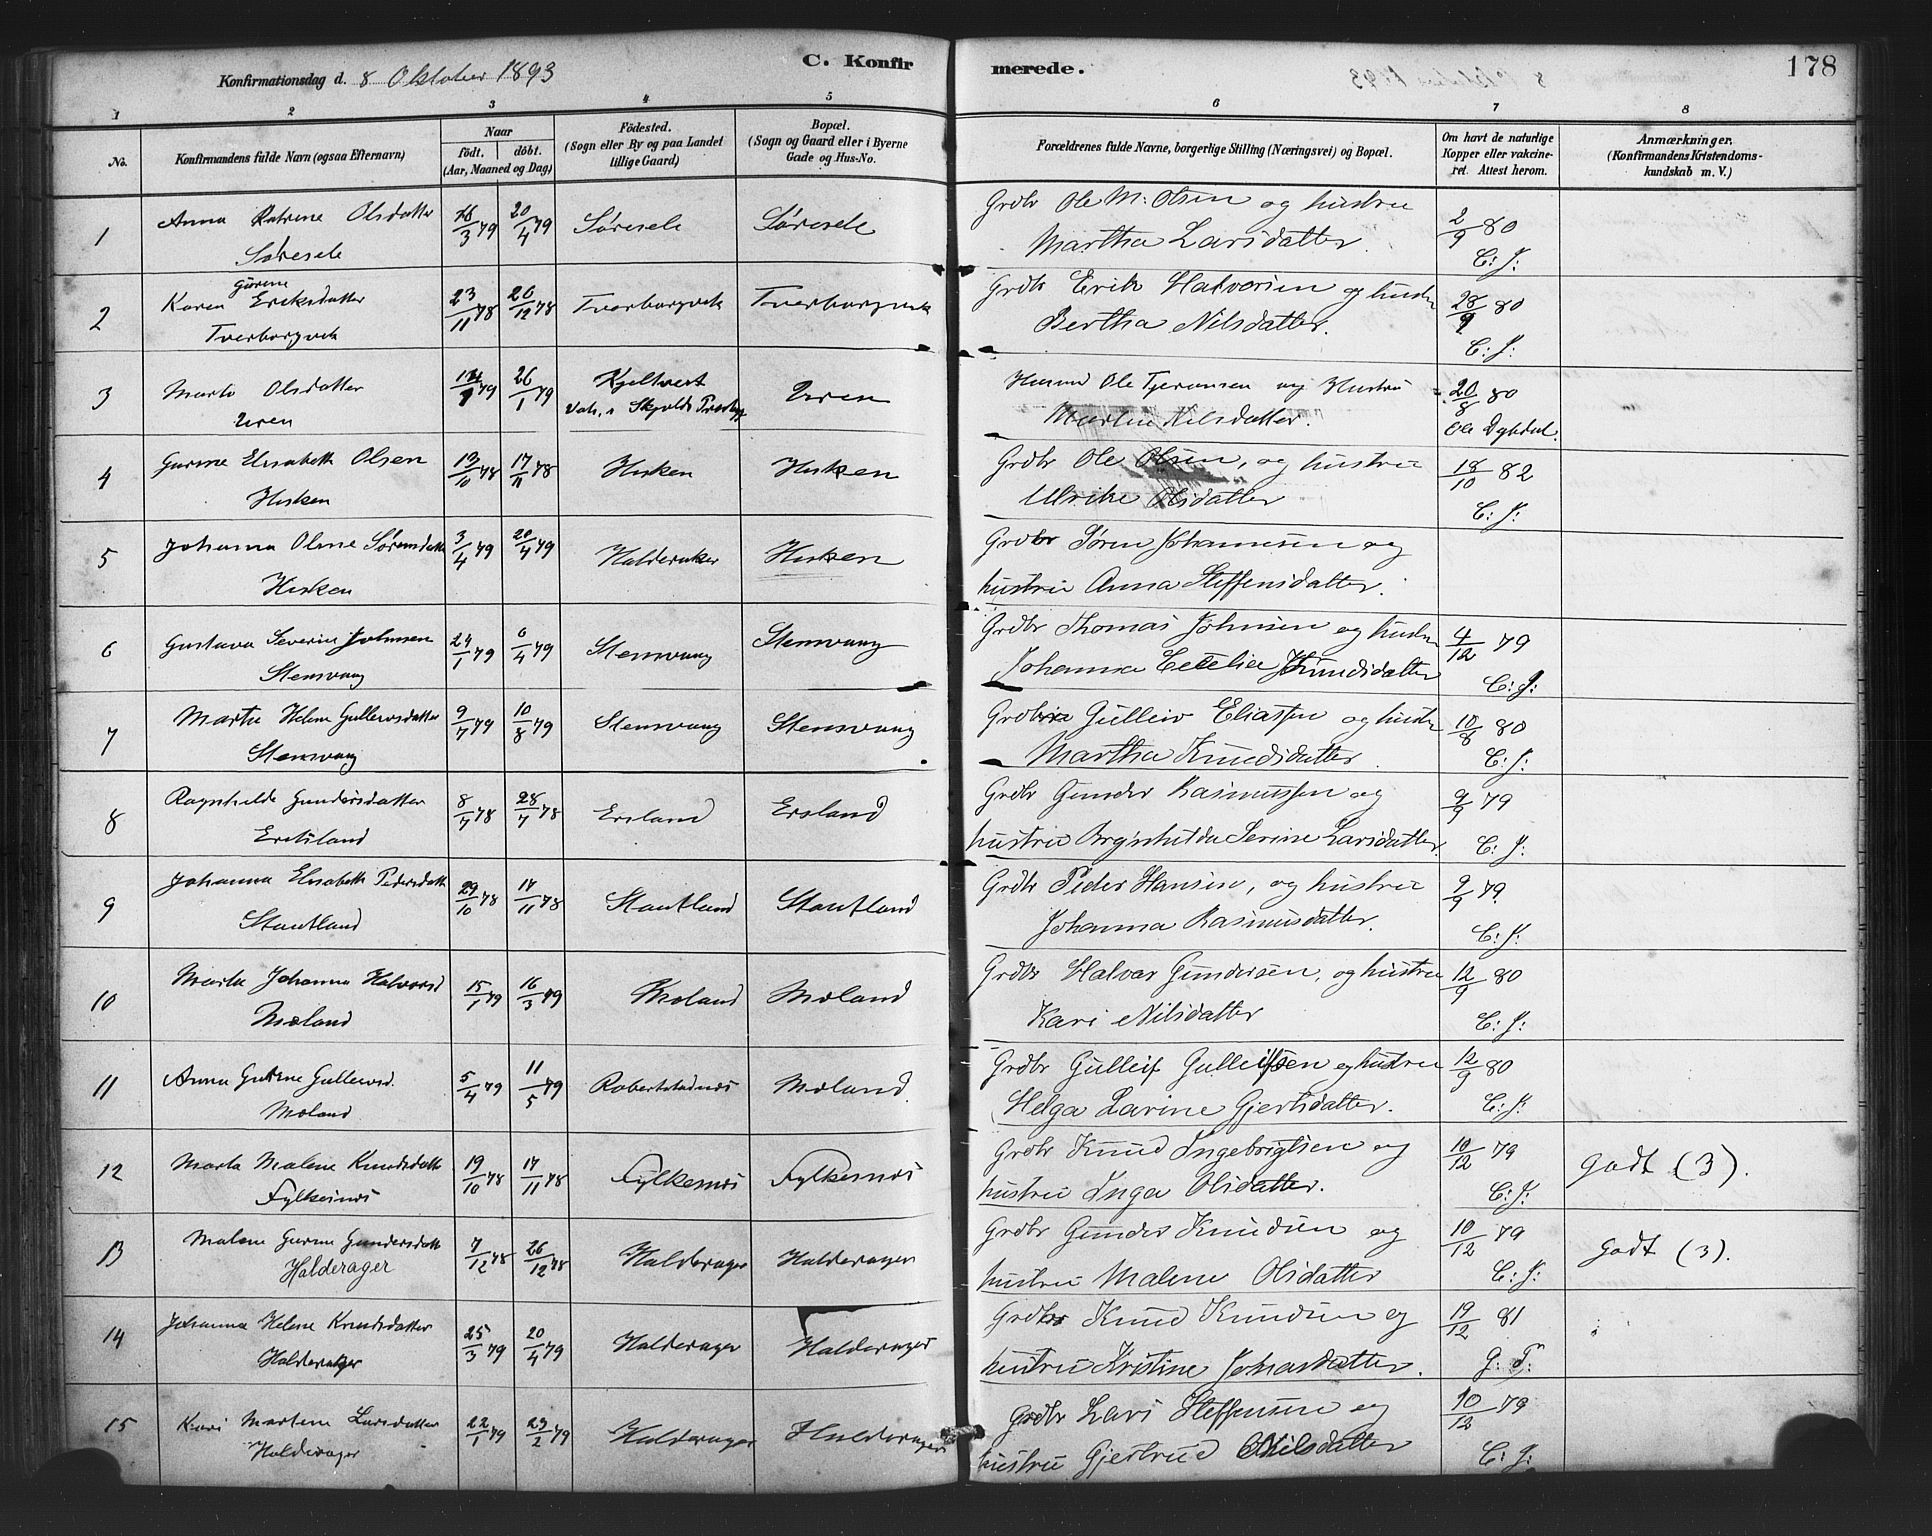 Konfirmationsdag d. 8 Oktober 1893
C. Konfirmerede.
178
1 2 3 4 5 6 7 8
No.
Konfirmandens fulde Navn (ogsaa Efternavn)
Naar
födt. döbt.
(Aar, Maaned og Dag)
Födested.
(Sogn eller By og paa Landet
tillige Gaard)
Bopæl.
(Sogn og Gaard eller i Byerne
Gade og Hus-No.
Forældrenes fulde Navne, borgerlige Stilling (Næringsvei) og Bopæl.
Om havt de naturlige
Kopper eller vakcine-
ret. Attest herom.
Anmærkninger.
(Konfirmandens Kristendoms-
kundskab m. V.)
1 Anna Katrine Olsdatter 16/3 79 20/4 79 Søresele Søresele Grdbr Ole M. Olsen og hustru 2/9 80
Søresele Martha Larsdatter. C: J:
2 Karen Gurine Eriksdatter 23/11 78 26/12 78 Tverborgvik Tverborgvik Grdb Erik Halvorsen og hustru 28/9 80
Tverborgvik Bertha Nilsdatter. C: J:
3 Marta Olsdatter 26/1 79 Uren Husmd Ole Tjeransen og Hustru 20/8 80
Uren Nilsdatter. Ole Dybdal.
4 Gurine Elisabeth Olsen 13/10 78 17/11 78 Hisken Hisken Grdbr Ole Olsen, og hustru 18/10 82
Hisken Ulrike Olsdatter C: J:
5 Johanna Oline Sørensdatt 3/4 79 20/4 79 Halderaker Hisken Grdbr Søren Johannesen og
Hisken hustru Anna Steffensdatter.
6 Gustava Severine Johnsen 24/1 79 6/4 79 Stensvaag Stensvaag Grdbr Thomas Johnsen og hustru 4/12 79
Stensvaag Johanna Cecelia Knudsdatter C: J:
7 Marta Helene Gulleivsdatter 9/7 79 10/8 79 Stensvaag Stensvaag Grdbr Gulleiv Eliassen og hustru 10/8 80
Stensvaag Martha Knudsdatter. C: J:
8 Ragnhilde Gundersdatter 8/7 78 28/7 78 Ersland Ersland Grdbr Gunder Rasmussen og 9/9 79
Ersland hustru Serine Larsdatter. C: J:
9 Johanna Elisabeth Pedersdatt 29/10 78 17/11 78 Stautland Stautland Grdbr Peder Hansen, og hustru 9/9 79.
Stautland Johanna Rasmusdatter. C: J:
10 Marta Johanna Halvorsd 15/1 79 16/3 79 Mæland Mæland Grdbr Halvor Gundersen, og hustru 12/9 80
Mæland Kari Nilsdatter C: J:
11 Anna Gurine Gulleivsd. 5/4 79 11/5 79 Robertstadnæs Mæland. Grdbr Gulleif Gulleifsen og hustru 12/9 80
Mæland Helga Larine Gjertsdatter. C: J:
12 Marta Malene Knudsdatt 19/10 78 17/11 78 Fylkesnæs Fylkesnæs Grdbr Knud Ingebrigtsen og 10/12 79 godt (3).
Fylkesnæs hustru Inga Olsdatter. C: J:
13 Malene Gurine Gundersdatt 7/12 78 26/12 78 Halderager Halderager Grdbr Gunder Knudsen og 10/12 79 godt (3).
Halderager hustru Malene Olsdatter C: J:
14 Johanna Helene Knudsdatter 25/3 79 20/4 79 Halderager Halderager Grdbr Knud Knudsen og 19/12 81
Halderager hustru Kristine Johnsdatter. G. T:
15 Kari Martine Larsdatter 22/1 79 23/2 79 Halderager Halderager Grdbr Lars Steffensen og 10/12 79
Halderager hustru Gjertrud Nilsdatter C: J: